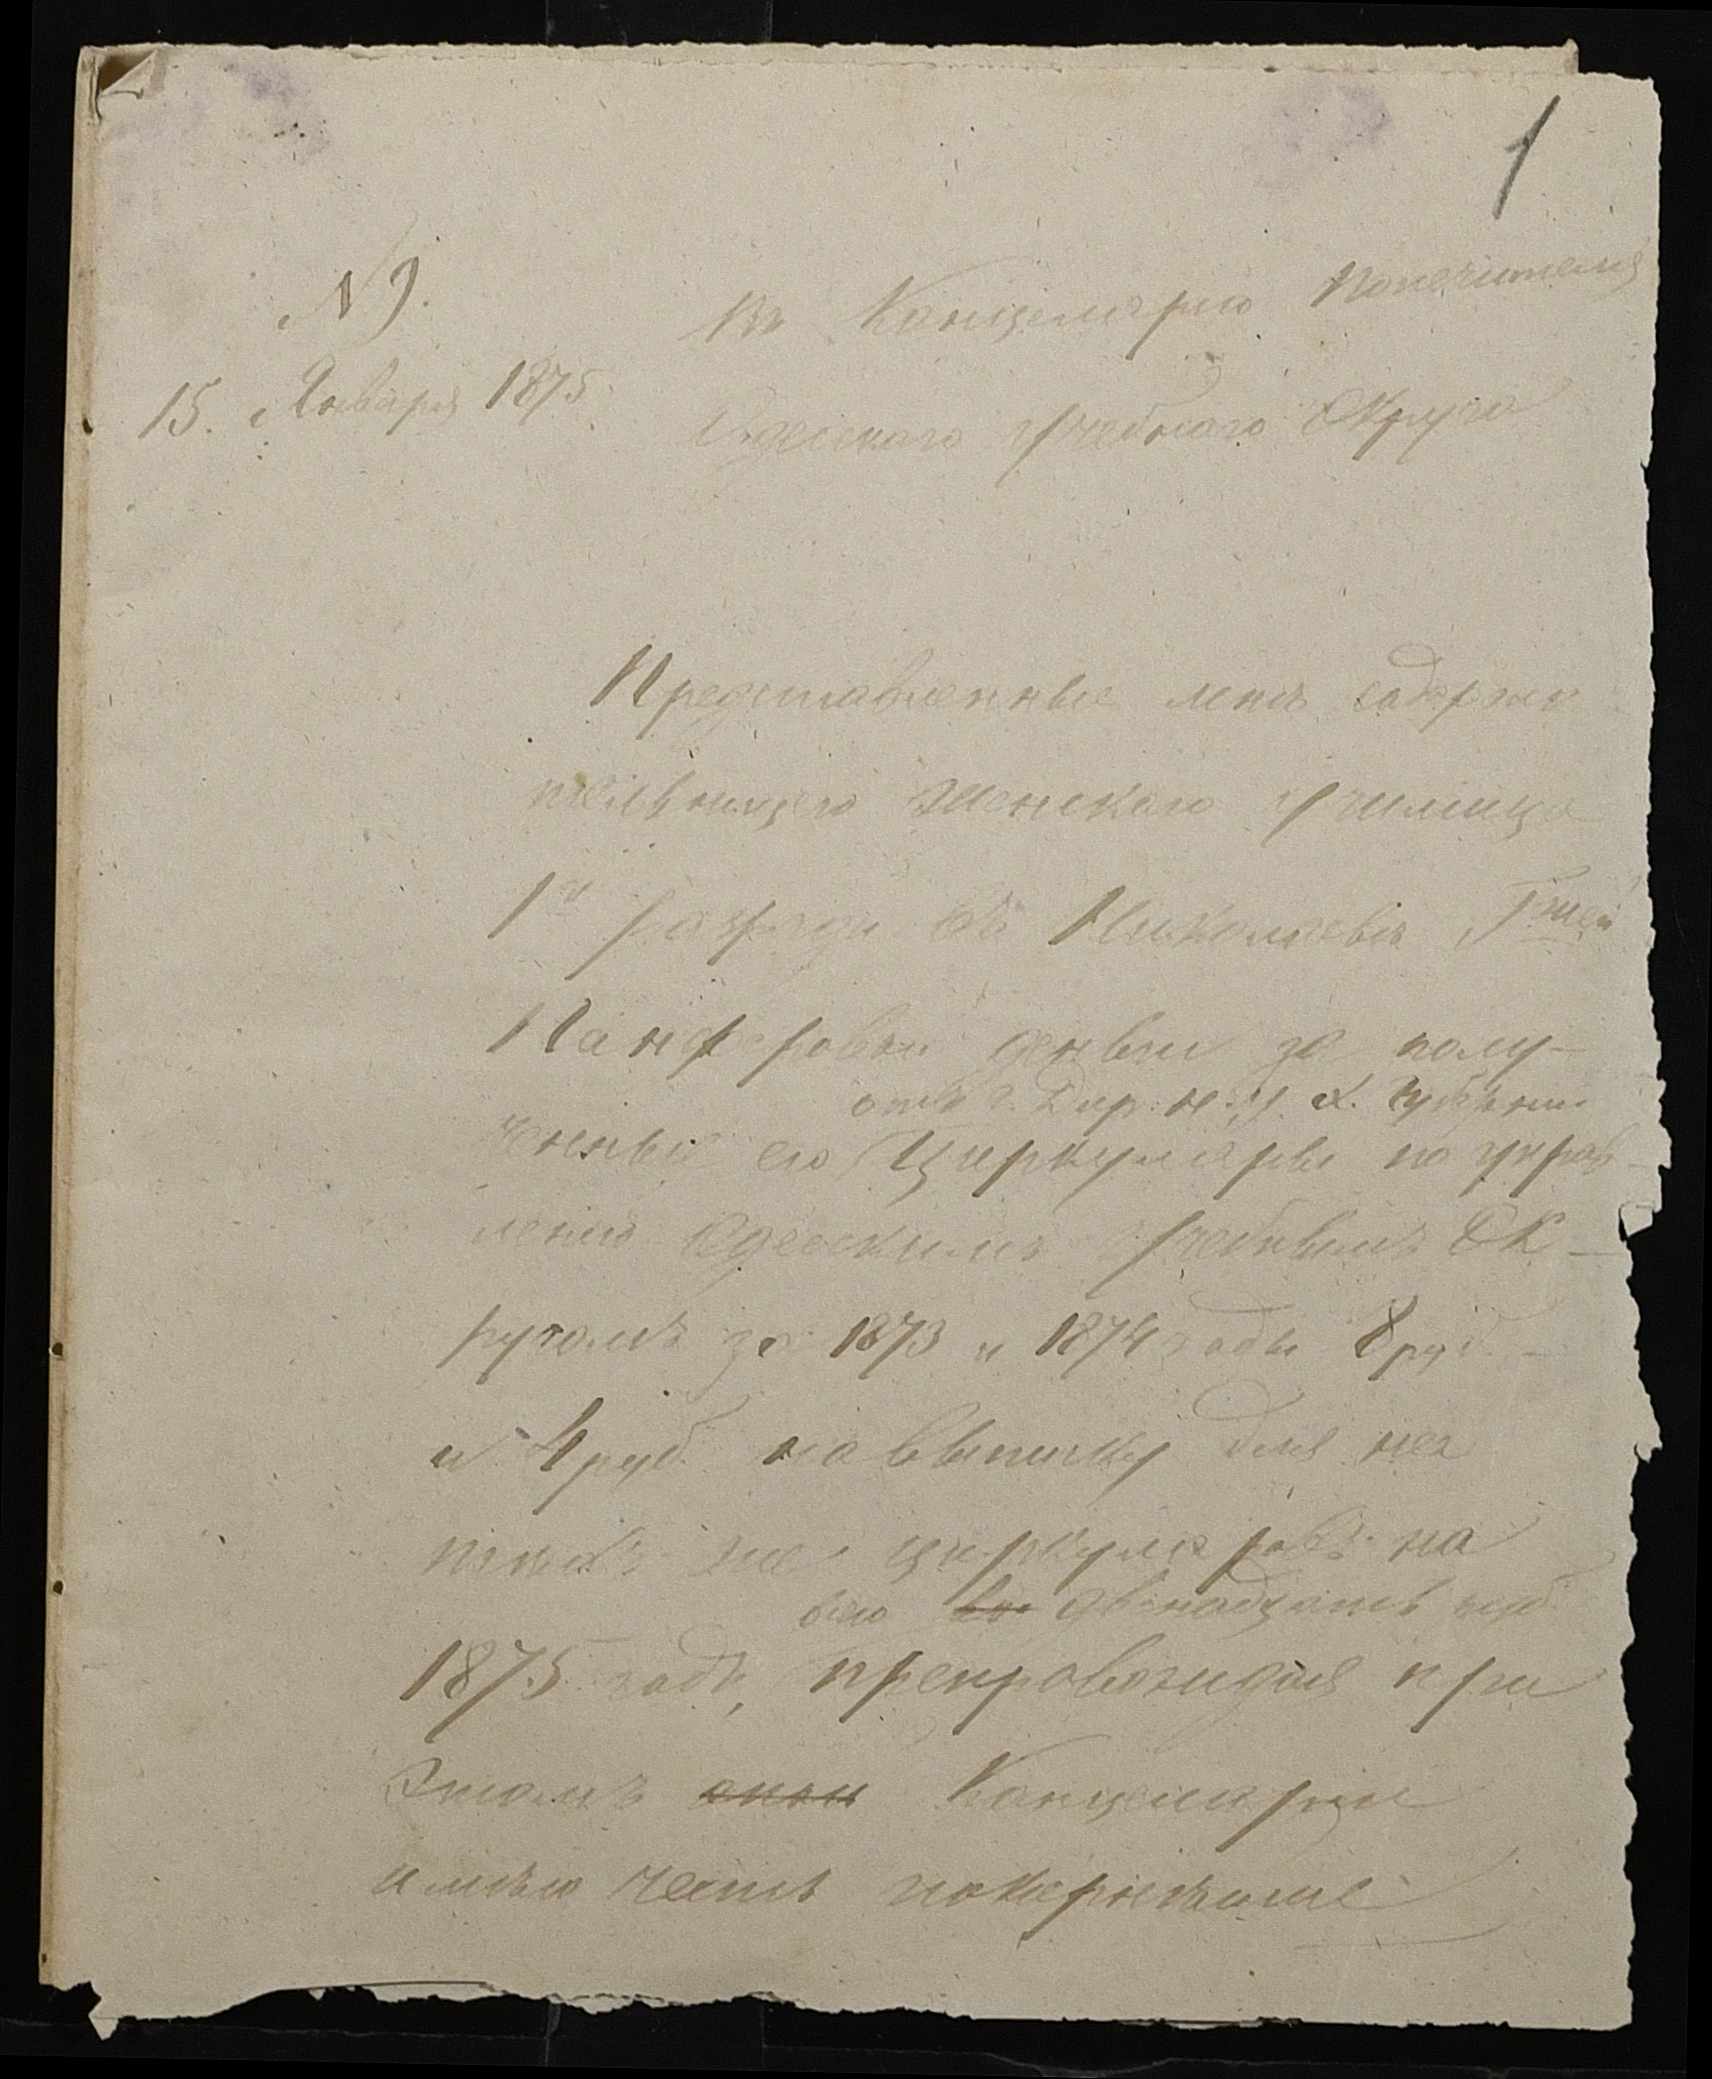 1
№ 9.
Въ Канцелярію Попечителя
15. Января 1875
Одесскаго Учебнаго Округа
Представленные мнѣ содержа
тельницею женскаго училища
1го разряда въ Николаевѣ Г-жею
Панферовою деньги за полу-
отъ г. Дир. н. у. Х. губерніи
ченные ею Циркуляры по управ-
ленію Одесскимъ Учебнымъ Ок-
ругомъ за 1873 и 1874 годы 8 руб.
и 4 руб. на выписку для нея
тѣхъ же циркуляровъ на
всего двѣнадцать руб.
1875 годъ, препровождая при
этомъ Канцеляріи
имѣю честь покорнѣйше